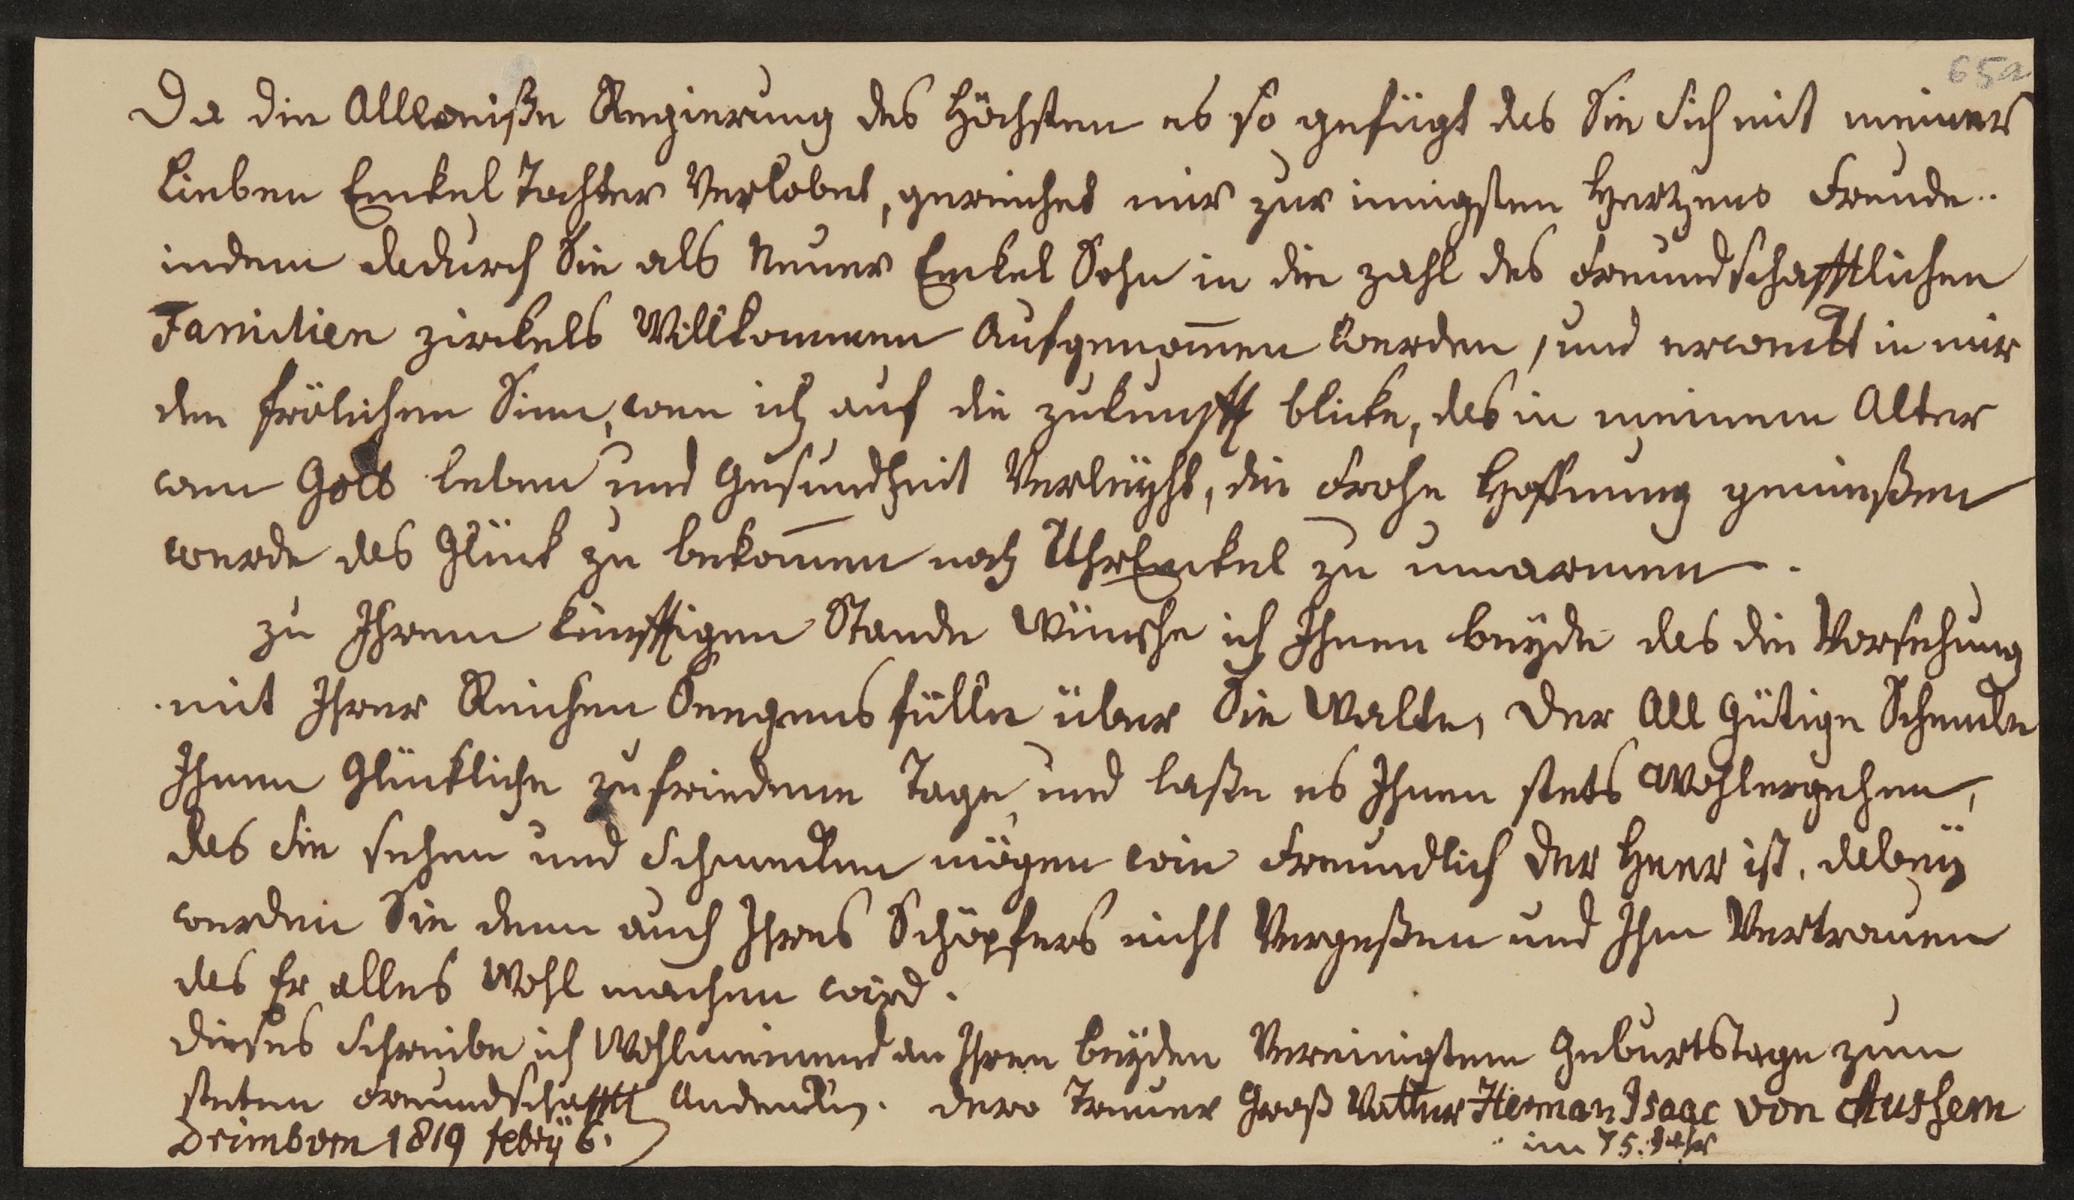 65a
Da die Allweiße Regierung des Höchsten es so gefügt das Sie Sich mit meiner
Lieben Enckel Tochter Verlobet, gereichet mir zur innigsten Hertzens Freude..
indem dadurch Sie als Neuer Enckel Sohn in die zahl des Freundschafftlichen
Familien zirckels Willkommen Aufgenom̅en werden, und erweckt in mir
den frölichen Sinn, wen ich auf die zukunfft blicke, das in meinem Alter
wen Gott leben und Gesundheit Verleyht, die Frohe Hoffnung genießen
werde das Glück zu bekom̅en noch UhrEnckel zu umarmen.
zu Ihrem künfftigen Stande Wünsche ich Ihnen beyde das die Vorsehung
mit Ihrer Reichen Seegens fülle über Sie Walte, Der All Gütige Schencke
Ihnen Glückliche zufriedene Tage und laße es Ihnen stets Wohlergehen,
das Sie sehen und Schmecken mögen wie Freundlich Der Heer ist. dabey
werden Sie denn auch Ihres Schöpfers nicht Vergeßen und Ihm Vertrauen
das Er alles Wohl machen wird.
Dieses Schreibe ich Wohlmeinend an Ihren beyden Vereinigtem Geburtstage zum
steten Freundschafftl Andencken. Dero Treuer Groß Vatter Herman Isaac von Aussem
Drimborn 1819 febry 6.
im 75. Jahr